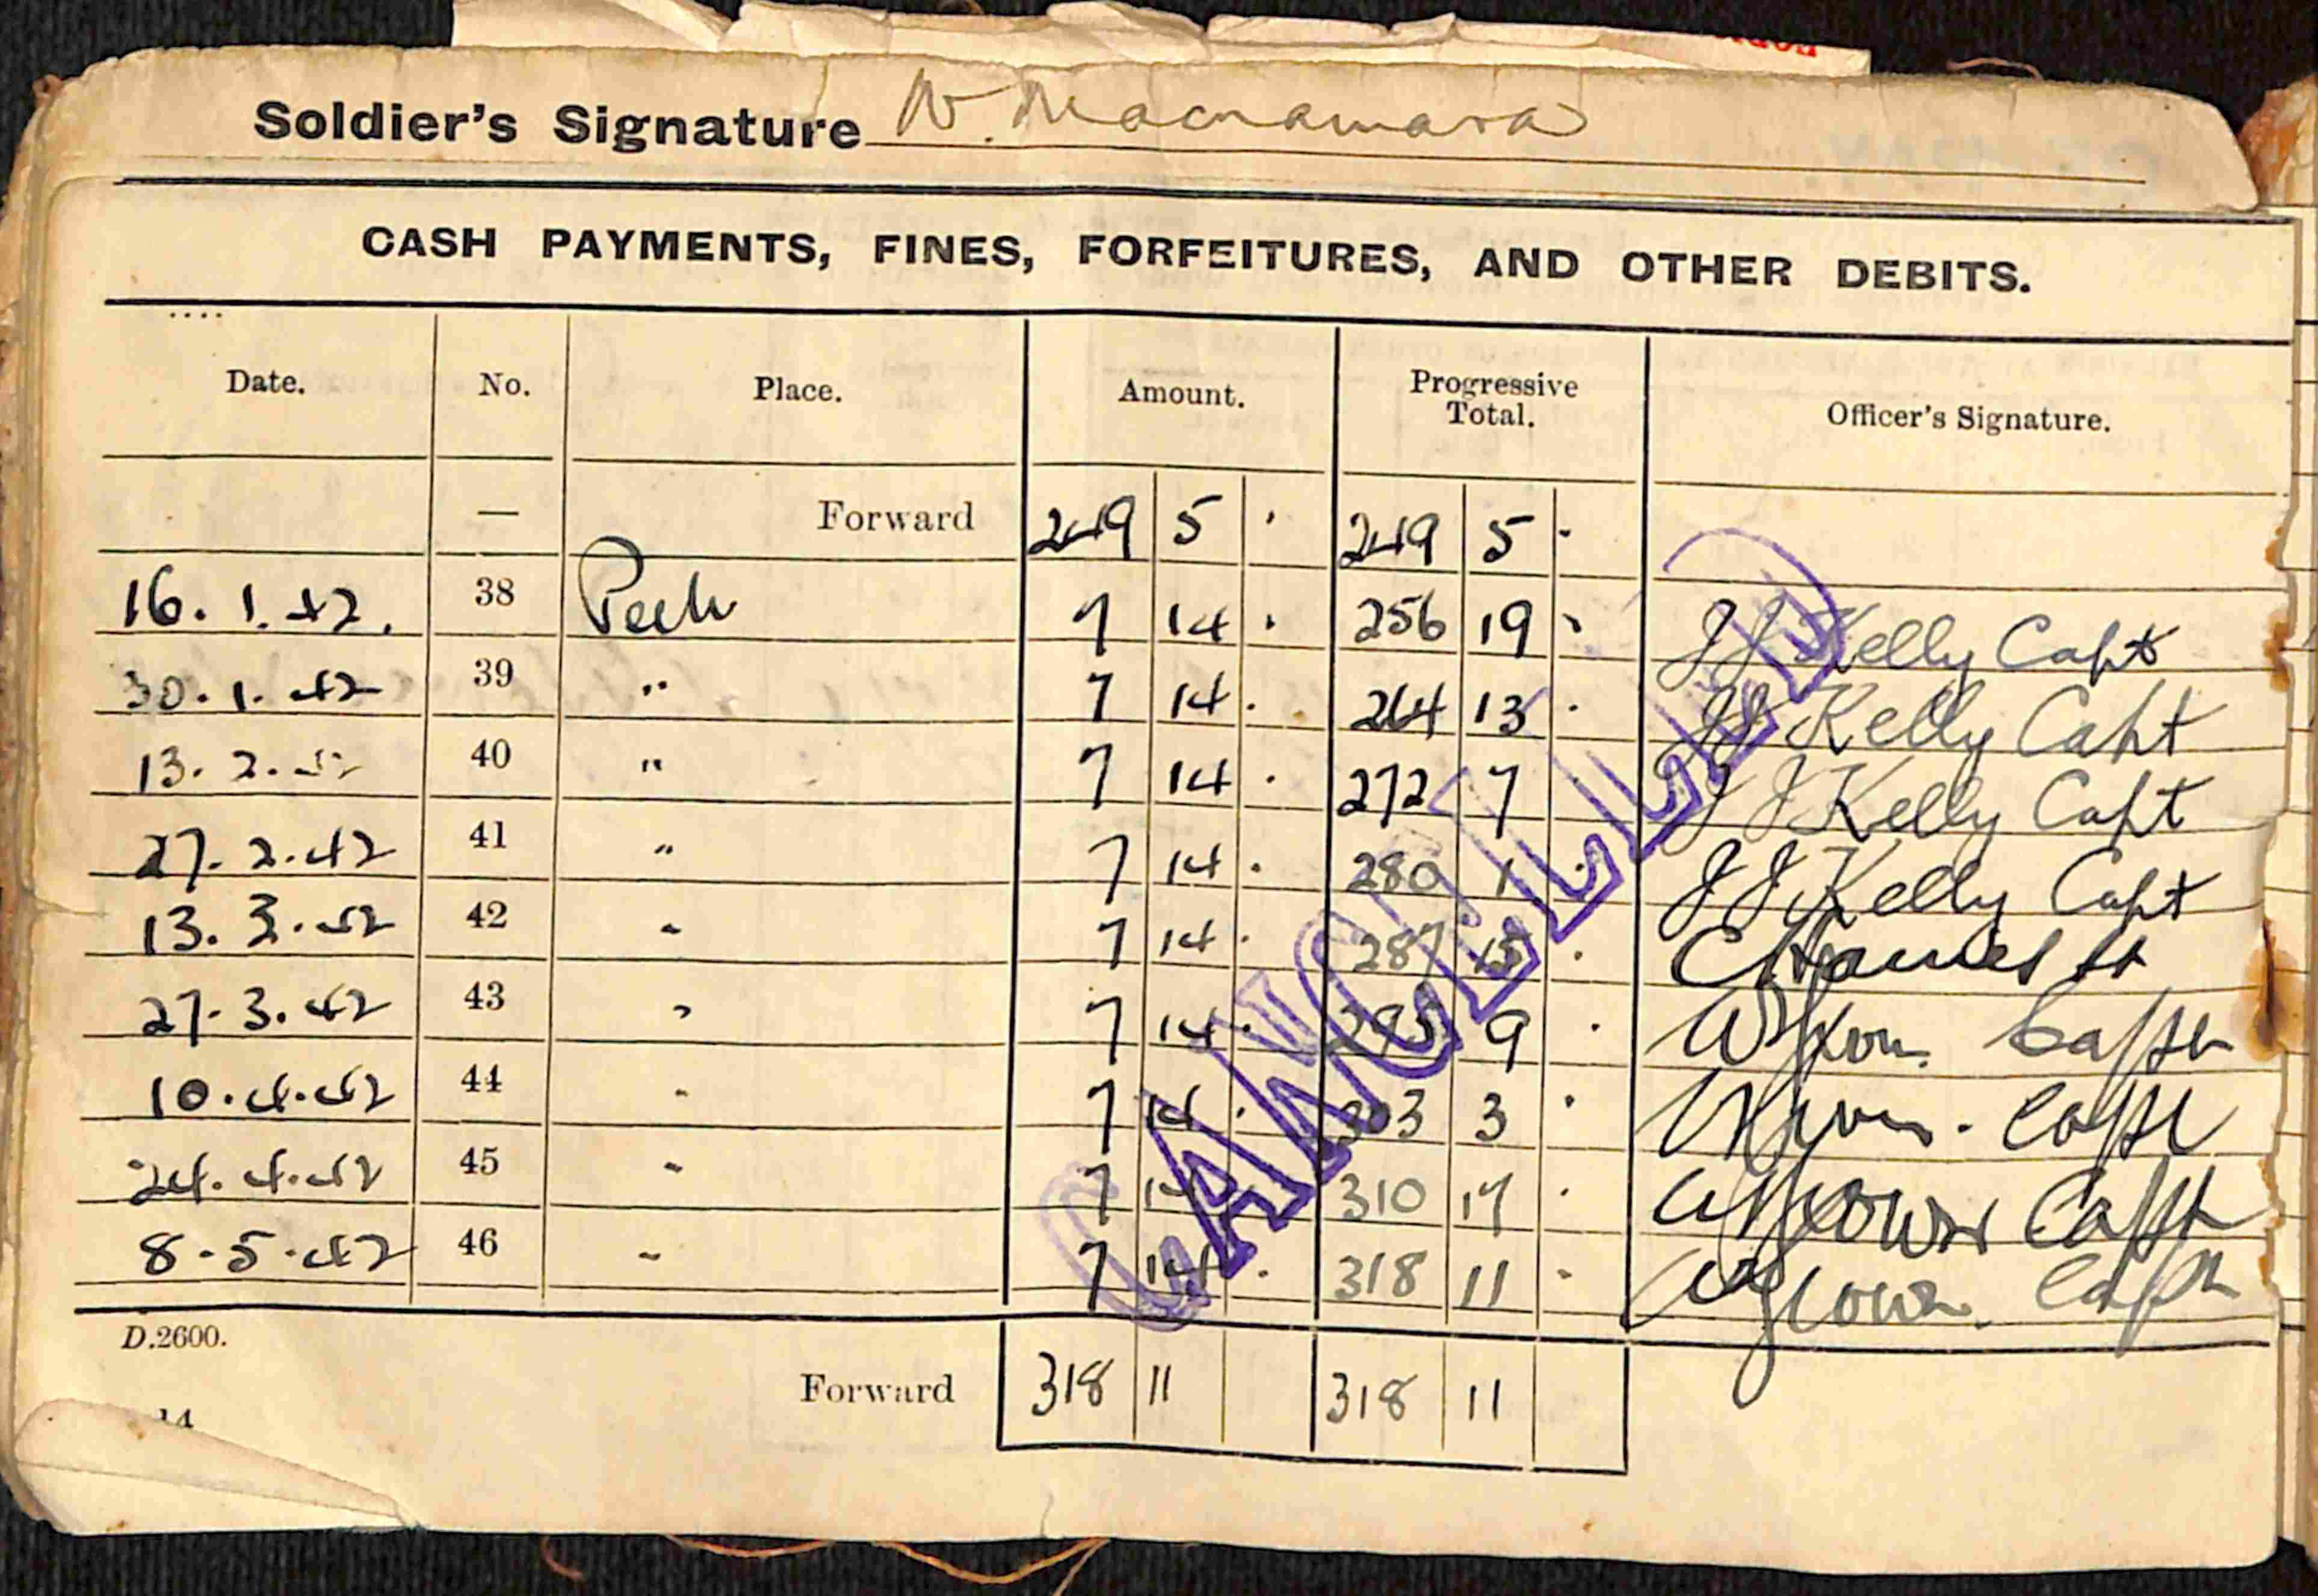 Soldier's Signature W. Macnamara
CASH PAYMENTS, FINES, FORFEITURES, AND OTHER DEBITS.
Date. No. Place. Amount. Progressive Total. Officer's Signature.
— Forward 249 5 · 249 5 ·
16. 1. 42. 38 7 14 · 256 19 · J J Kelly Capt
30. 1. 42 39 " 7 14 · 264 13 · J J Kelly Capt
13. 2. 42 40 " 7 14 · 272 7 · J J Kelly Capt
27. 2. 42 41 " 7 14 · 280 1 · J J Kelly Capt
13. 3. 42 42 " 7 14 · 287 15 ·
27. 3. 42 43 " 7 14 · 295 9 · Capt
10. 4. 42 44 " 7 14 · 303 3 · Capt
24. 4. 42 45 " 7 14 · 310 17 · Capt
8. 5. 42 46 " 7 14 · 318 11 · Capt
CANCELLED
D.2600.
Forward 318 11 318 11